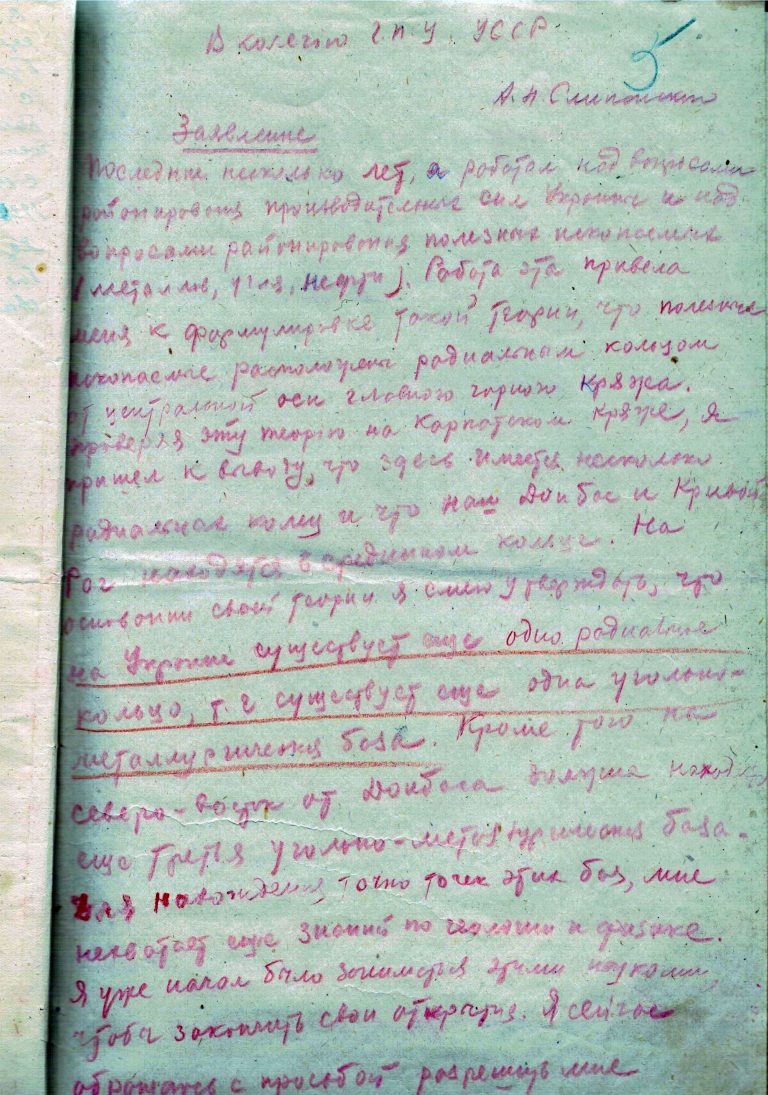 В колегию ГПУ УССР
5
А.А. Слипанского
Заявление
Последние несколько лет, я работал над вопросами
районирования производительных сил Украины и над
вопросами районирования полезных ископаемых
(металлов, угля, нефти). Работа эта привела
меня к формулировке такой теории, что полезные
ископаемые расположены радиальным кольцом
от центральной оси главного горного кряжа.
Проверяя эту теорию на Карпатском кряже, я
пришел к выводу, что здесь имеется несколько
радиальных колец и что наш Донбас и Кривой
Рог находятся в срединном кольце. На
основании своей теории я смею утверждать, что
на Украине существует еще одно радиальное
кольцо, т.е существует еще одна угольно-
металлургическая база. Кроме того на
северо-восток от Донбаса должна находится
еще третья угольно-металлургическая база.
Для нахождения точно точек этих баз, мне
нехватает еще знаний по геологии и физике.
Я уже начал было заниматся этими науками,
чтобы закончить свои открытия. Я сейчас
обращаюсь с просьбой разрешить мне